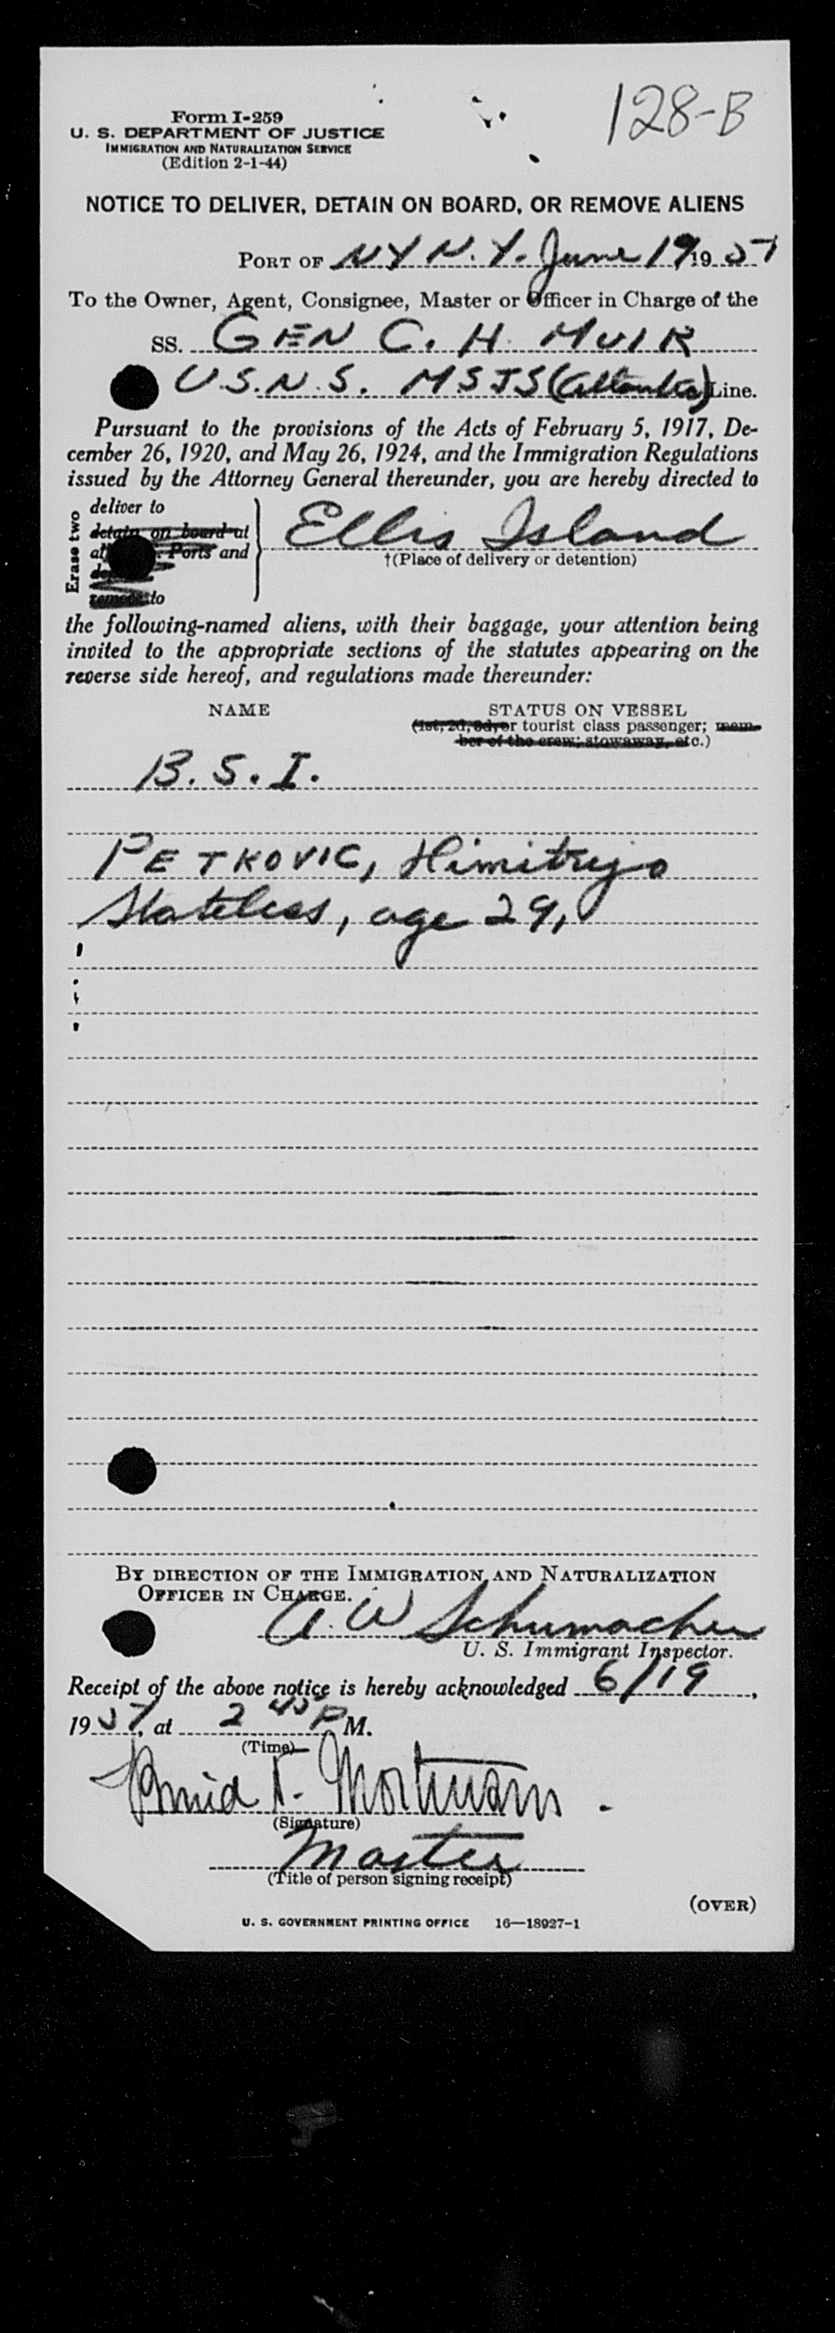 128-B
Form I-259
U. S. DEPARTMENT OF JUSTICE
IMMIGRATION AND NATURALIZATION SERVICE
(Edition 2-1-44)
NOTICE TO DELIVER, DETAIN ON BOARD, OR REMOVE ALIENS
PORT OF NY N.Y. June 19 19 51
To the Owner, Agent, Consignee, Master or Officer in Charge of the
SS. GEN C. H. MUIR
U.S.N.S. MSTS (Atlantic) Line.
Pursuant to the provisions of the Acts of February 5, 1917, De-
cember 26, 1920, and May 26, 1924, and the Immigration Regulations
issued by the Attorney General thereunder, you are hereby directed to
Erase two
deliver to
detain on board at
Ports and
remove to
Ellis Island
†(Place of delivery or detention)
the following-named aliens, with their baggage, your attention being
invited to the appropriate sections of the statutes appearing on the
reverse side hereof, and regulations made thereunder:
NAME STATUS ON VESSEL
(1st, 2d, 3d, or tourist class passenger; mem-
ber of the crew; stowaway, etc.)
B.S.I.
PETKOVIC, Himitrijo
Stateless, age 29,
BY DIRECTION OF THE IMMIGRATION AND NATURALIZATION
OFFICER IN CHARGE.
A. W Schumacher
U. S. Immigrant Inspector.
Receipt of the above notice is hereby acknowledged 6/19,
1951, at 2 45 P M.
(Time)
(Signature)
Master
(Title of person signing receipt)
(OVER)
U. S. GOVERNMENT PRINTING OFFICE 16—18927-1